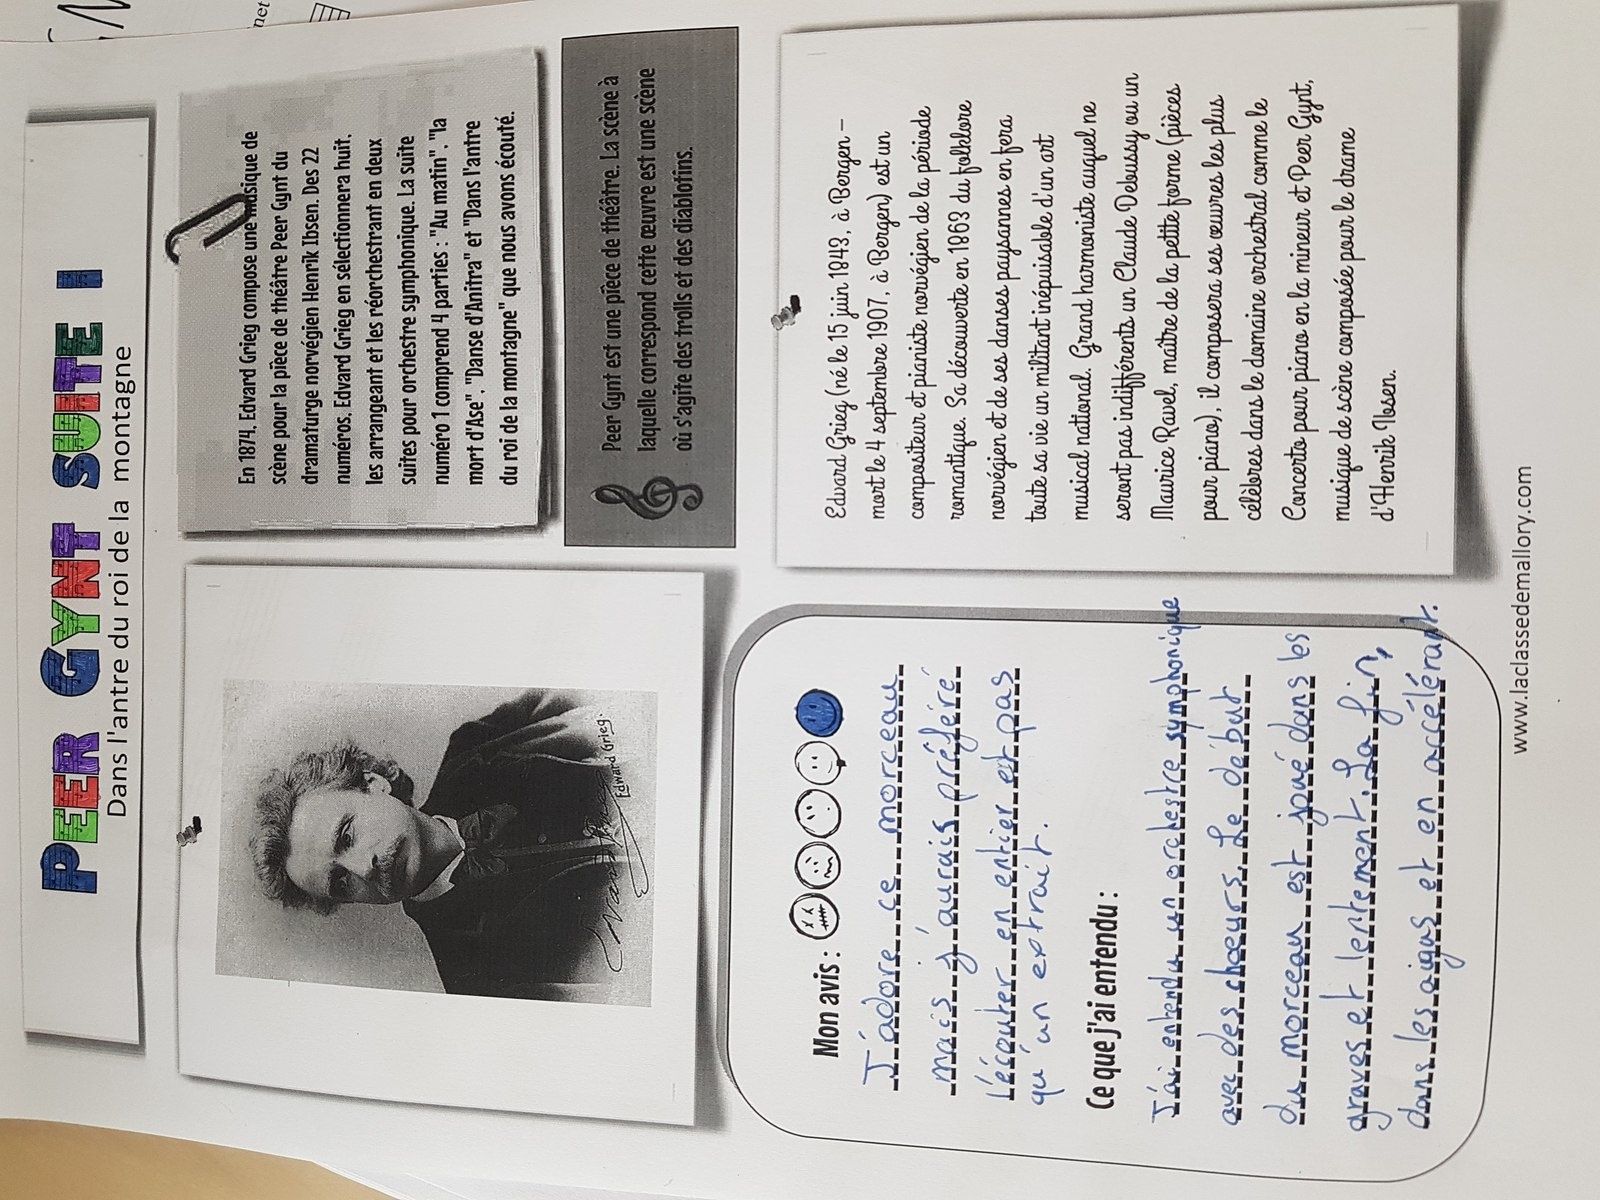 net
PEER GYNT SUITE I
Dans l'antre du roi de la montagne
Edward Grieg.
En 1874, Edvard Grieg compose une musique de
scène pour la pièce de théâtre Peer Gynt du
dramaturge norvégien Henrik Ibsen. Des 22
numéros, Edvard Grieg en sélectionnera huit,
les arrangeant et les réorchestrant en deux
suites pour orchestre symphonique. La suite
numéro 1 comprend 4 parties : "Au matin", "la
mort d'Ase", "Danse d'Anitra" et "Dans l'antre
du roi de la montagne" que nous avons écouté.
Peer Gynt est une pièce de théâtre. La scène à
laquelle correspond cette œuvre est une scène
où s'agite des trolls et des diablotins.
Mon avis :
J'adore ce morceau
mais j'aurais préféré
l'écouter en entier et pas
qu'un extrait.
Ce que j'ai entendu :
J'ai entendu un orchestre symphonique
avec des chœurs. Le début
du morceau est joué dans les
graves et lentement. La fin,
dans les aigus et en accélérant.
Edvard Grieg (né le 15 juin 1843, à Bergen –
mort le 4 septembre 1907, à Bergen) est un
compositeur et pianiste norvégien de la période
romantique. Sa découverte en 1863 du folklore
norvégien et de ses danses paysannes en fera
toute sa vie un militant inépuisable d'un art
musical national. Grand harmoniste auquel ne
seront pas indifférents un Claude Debussy ou un
Maurice Ravel, maître de la petite forme (pièces
pour piano), il composera ses œuvres les plus
célèbres dans le domaine orchestral comme le
Concerto pour piano en la mineur et Peer Gynt,
musique de scène composée pour le drame
d'Henrik Ibsen.
www.laclassedemallory.com